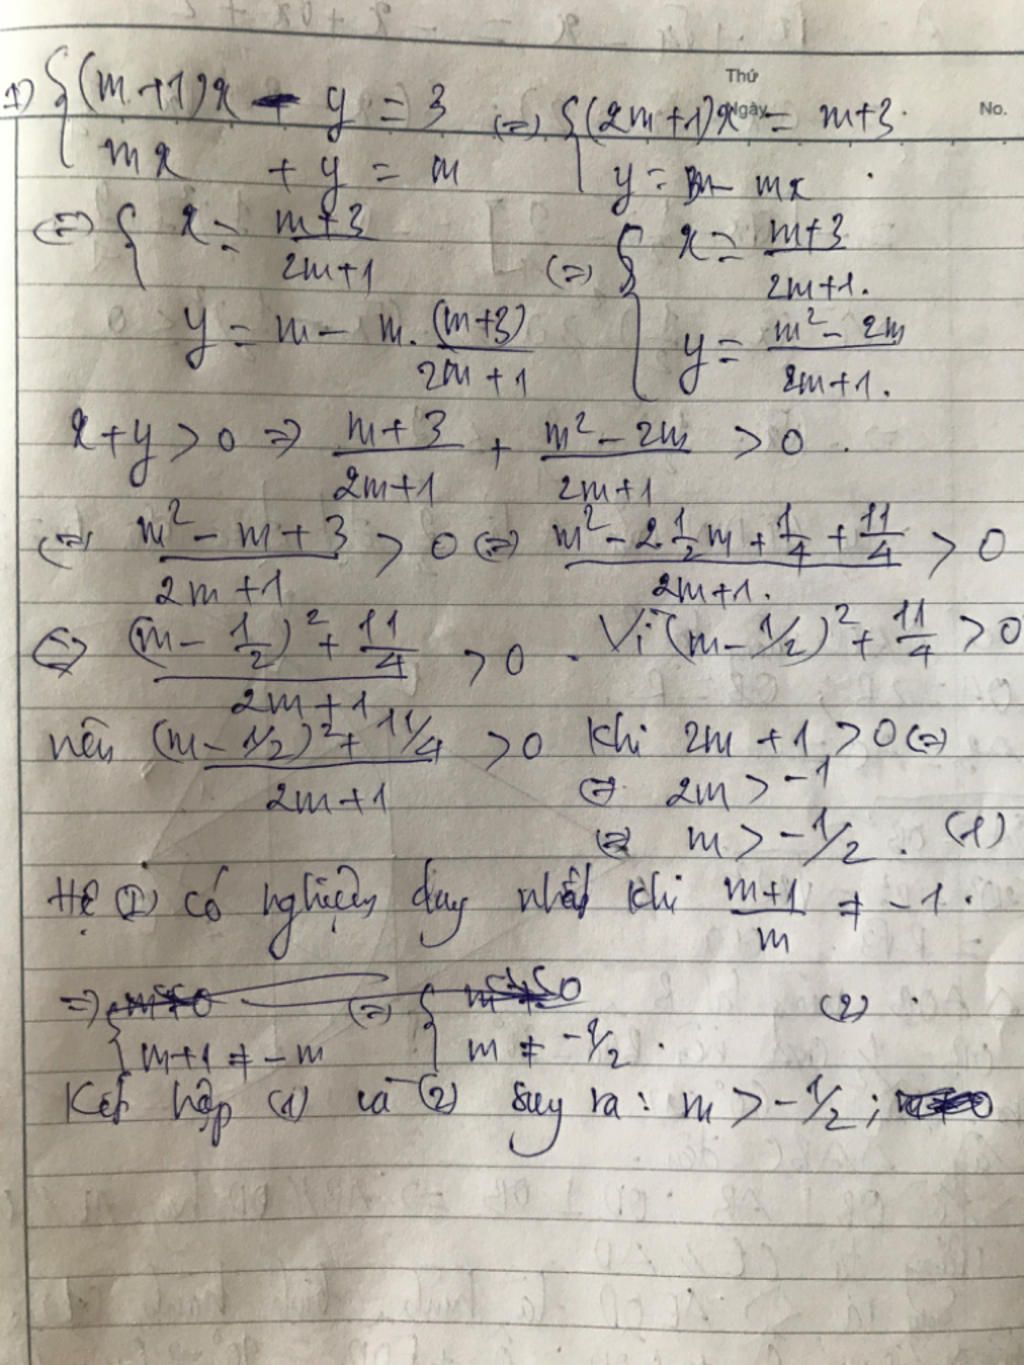 Thứ
Ngày
No.
1) { (m+1)x - y = 3 (=) { (2m+1)x = m+3.
mx + y = m    y = m - mx .
(=) { x = \frac{m+3}{2m+1} (=) { x = \frac{m+3}{2m+1.}
y = m - m.\frac{(m+3)}{2m+1}    y = \frac{m^2-2m}{2m+1.}
x+y > 0 => \frac{m+3}{2m+1} + \frac{m^2-2m}{2m+1} > 0 .
(=) \frac{m^2-m+3}{2m+1} > 0 (=) \frac{m^2-2\frac{1}{2}m+\frac{1}{4}+\frac{11}{4}}{2m+1.} > 0
<=> \frac{(m-\frac{1}{2})^2+\frac{11}{4}}{2m+1} > 0 . Vì (m-1/2)^2 + \frac{11}{4} > 0
nên \frac{(m-1/2)^2+11/4}{2m+1} > 0 khi 2m+1 > 0 (=)
(=) 2m > -1
(=) m > -1/2 . (1)
Hệ (I) có nghiệm duy nhất khi \frac{m+1}{m} ≠ -1 .
=> { m+1 ≠ -m (=) { m ≠ -1/2 . (2) .
Kết hợp (1) và (2) suy ra : m > -1/2 ;